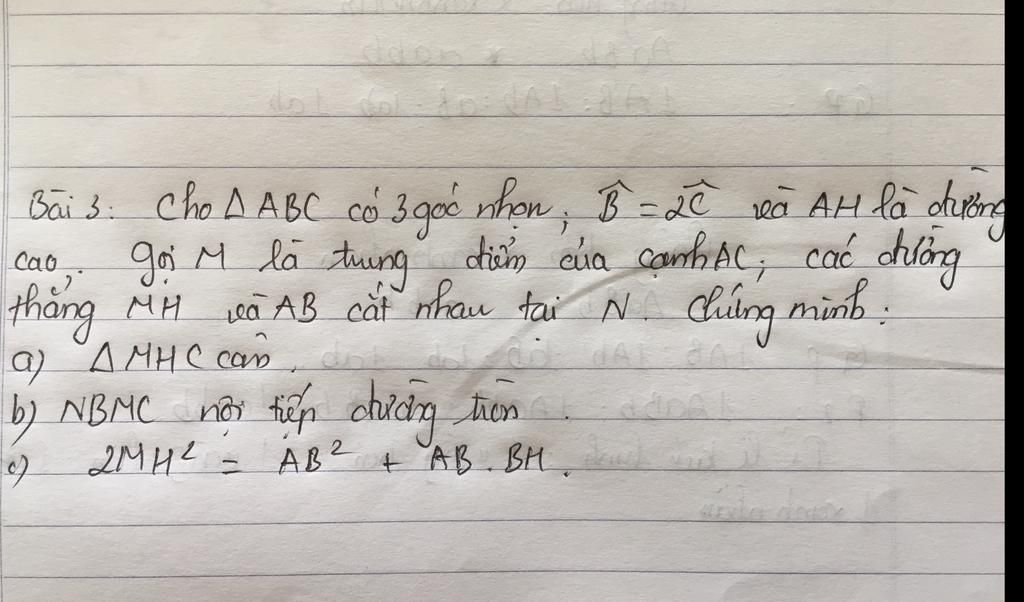 Bài 3: Cho △ ABC có 3 góc nhọn; B̂ = 2Ĉ và AH là đường
cao. gọi M là trung điểm của cạnh AC; các đường
thẳng MH và AB cắt nhau tại N. Chứng minh:
a) △ MHC cân.
b) NBMC nội tiếp đường tròn.
c) 2MH² = AB² + AB.BH.